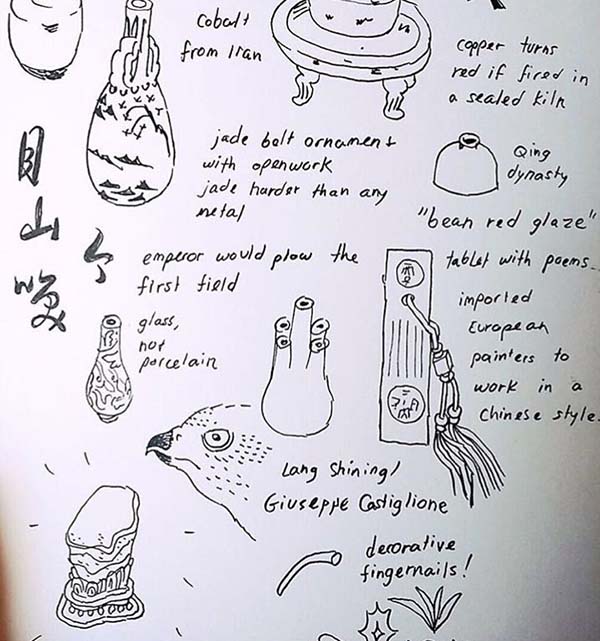 Cobalt
from Iran
copper turns
red if fired in
a sealed kiln
jade belt ornament
with openwork
jade harder than any
metal
Qing
dynasty
"bean red glaze"
山
emperor would plow the
first field
tablet with poems.
glass,
not
porcelain
imported
European
painters to
work in a
Chinese style.
Lang Shining/
Giuseppe Castiglione
decorative
fingernails!